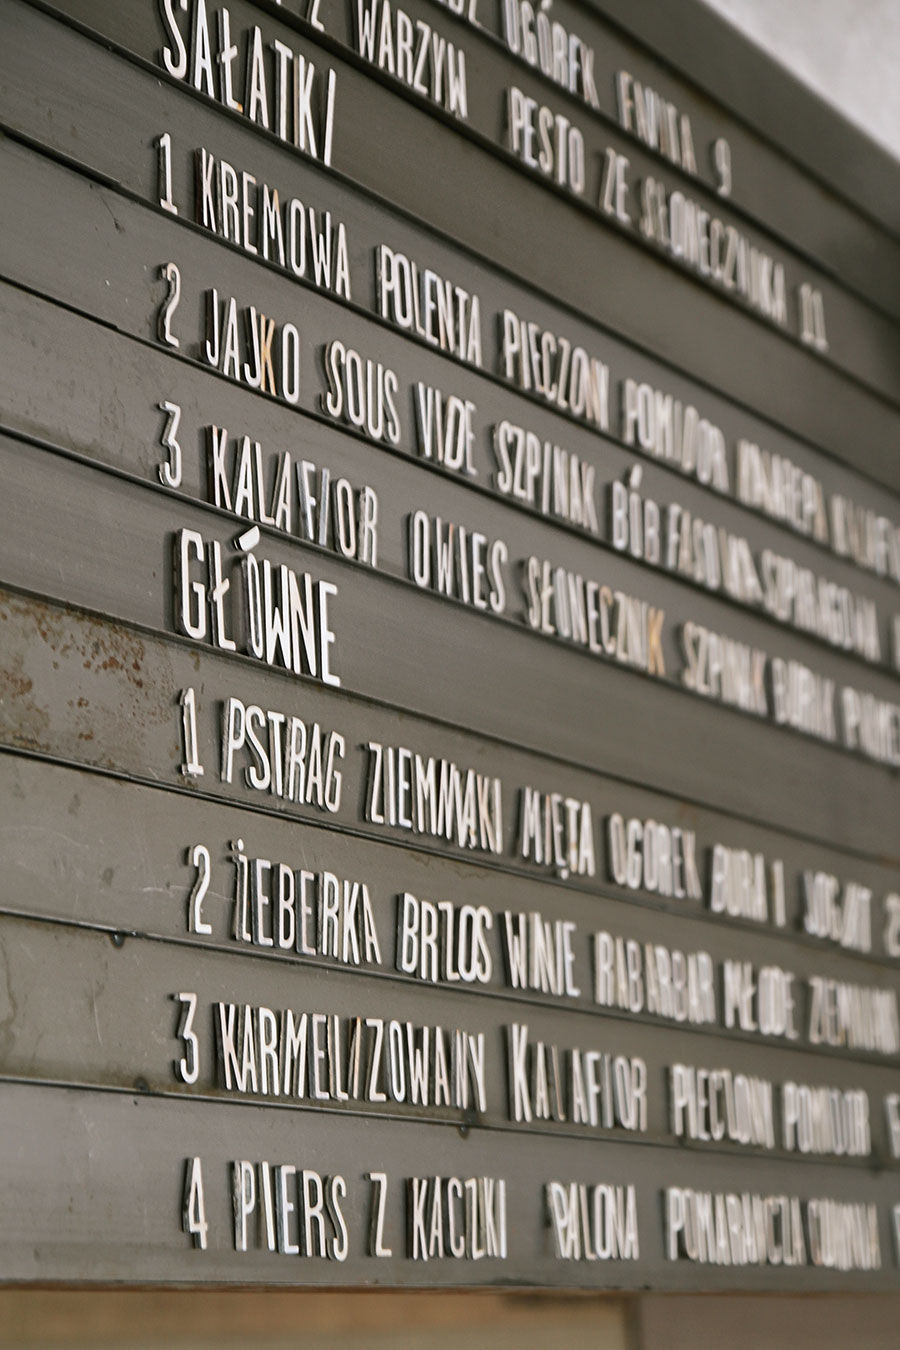 OGÓREK FRYTA 9
Z WARZYW PESTO ZE SŁONECZNIKA 11
SAŁATKI
1 KREMOWA POLENTA PIECZONY POMIDOR
2 JAJKO SOUS VIDE SZPINAK BÓB FASOLKA SZPARAGOWA
3 KALAFIOR OWIES SŁONECZNIK SZPINAK BURAK
GŁÓWNE
1 PSTRĄG ZIEMNIAKI MIĘTA OGOREK BURAK JOGURT
2 ŻEBERKA BRZOS WINIE RABARBAR MŁODE ZIEMNIAKI
3 KARMELIZOWANY KALAFIOR PIECZONY POMIDOR
4 PIERŚ Z KACZKI PALONA POMARAŃCZA